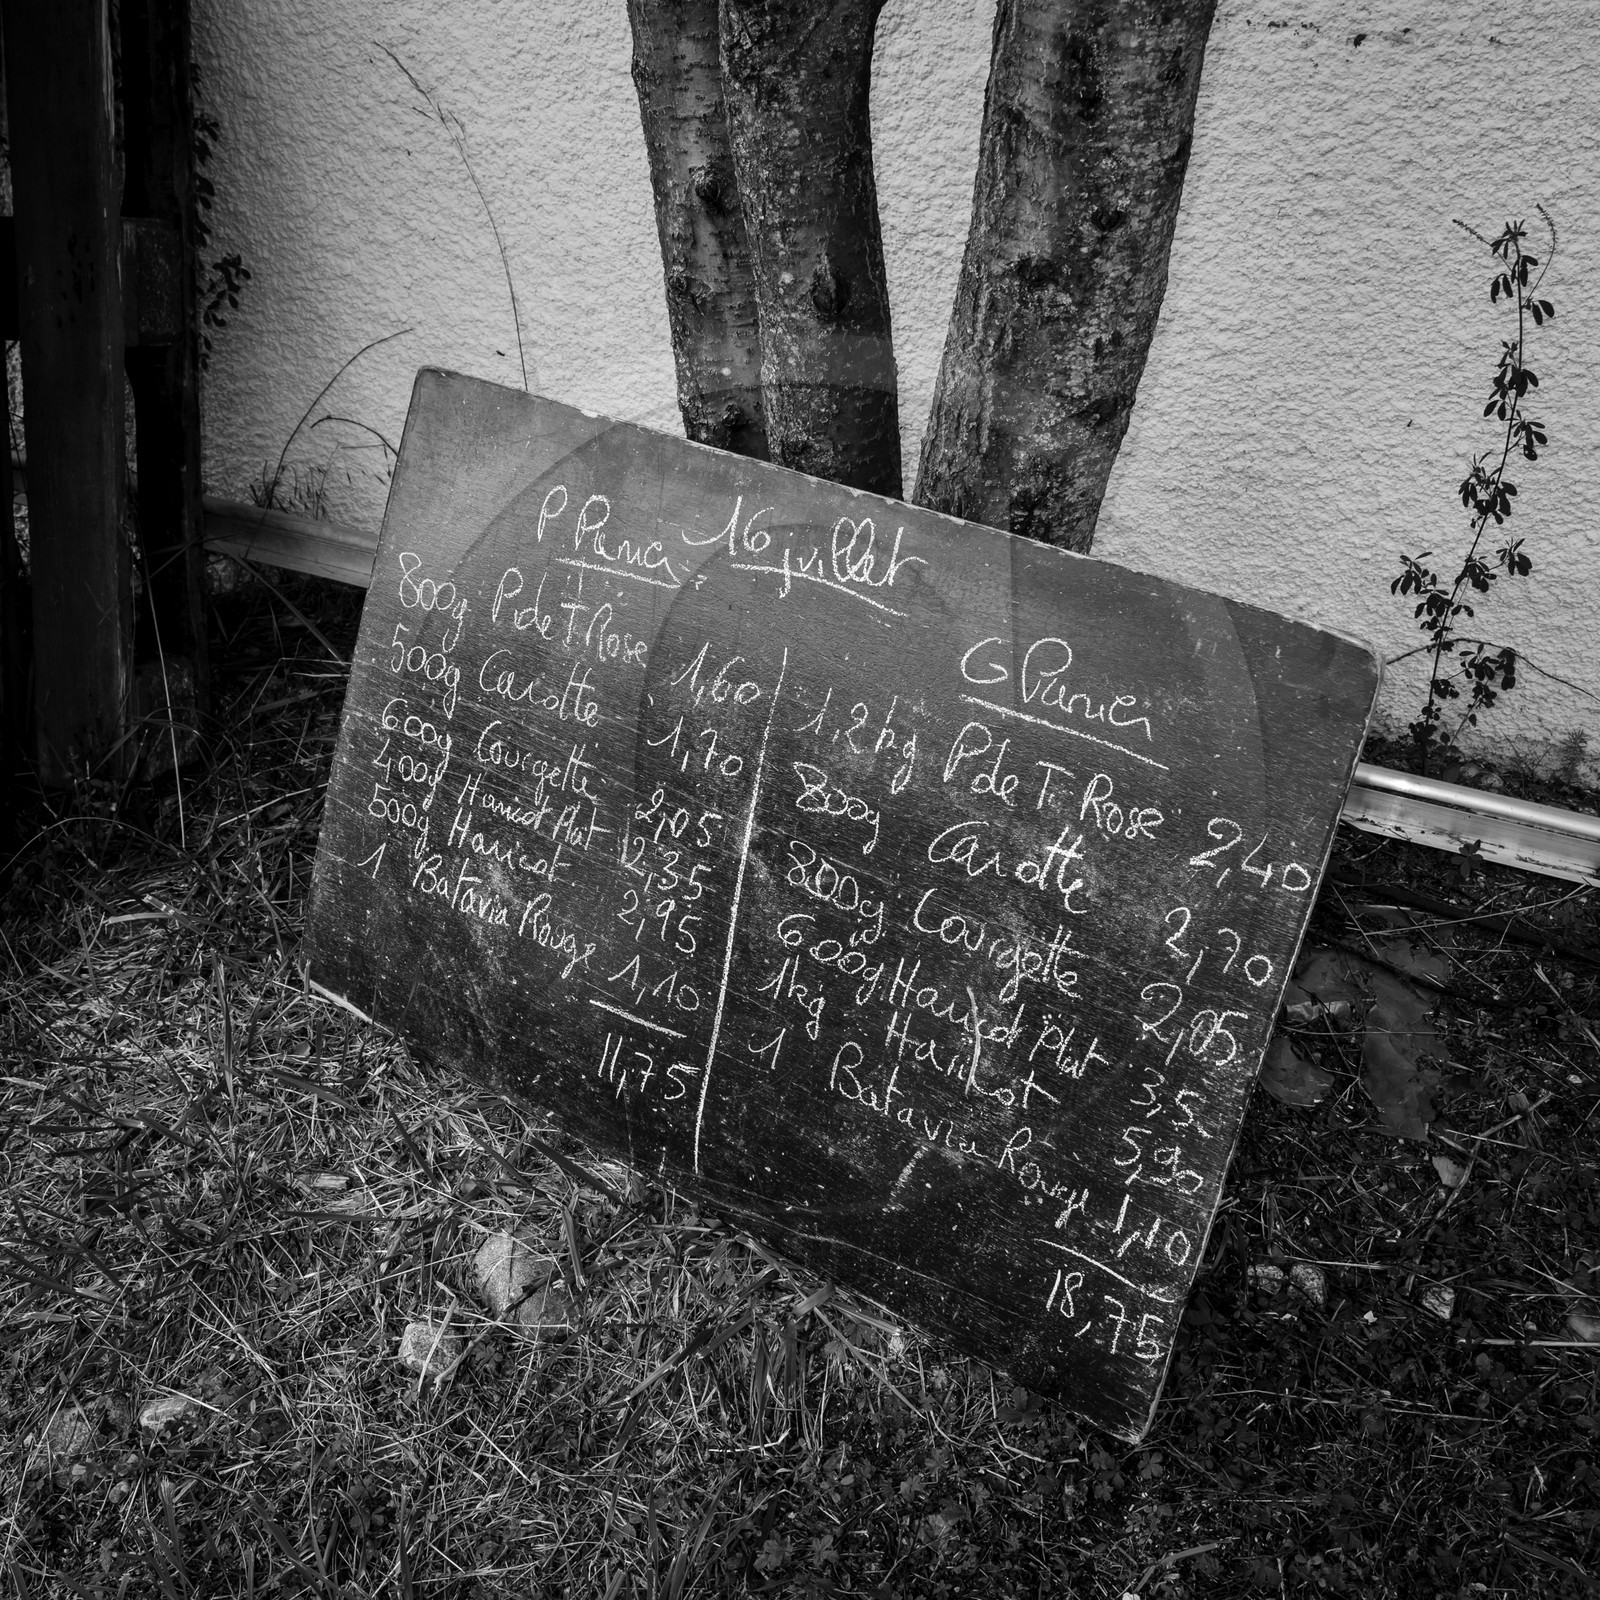 P Panier 16 juillet
800g P. de T. Rose 1,60
500g Carotte 1,70
600g Courgette 2,05
400g Haricot Plat 2,35
500g Haricot 2,95
1 Batavia Rouge 1,10
11,75
G Panier
1,2kg P de T. Rose 2,40
800g Carotte 2,70
800g Courgette 2,05
600g Haricot Plat 3,5
1kg Haricot 5,90
1 Batavia Rouge 1,10
18,75